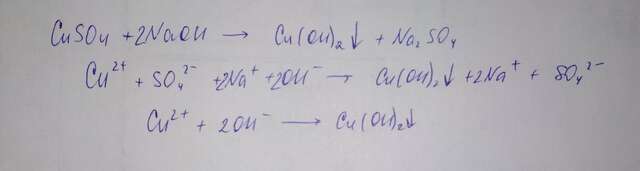 CuSO₄ + 2NaOH → Cu(OH)₂↓ + Na₂SO₄
Cu²⁺ + SO₄²⁻ + 2Na⁺ + 2OH⁻ → Cu(OH)₂↓ + 2Na⁺ + SO₄²⁻
Cu²⁺ + 2OH⁻ → Cu(OH)₂↓